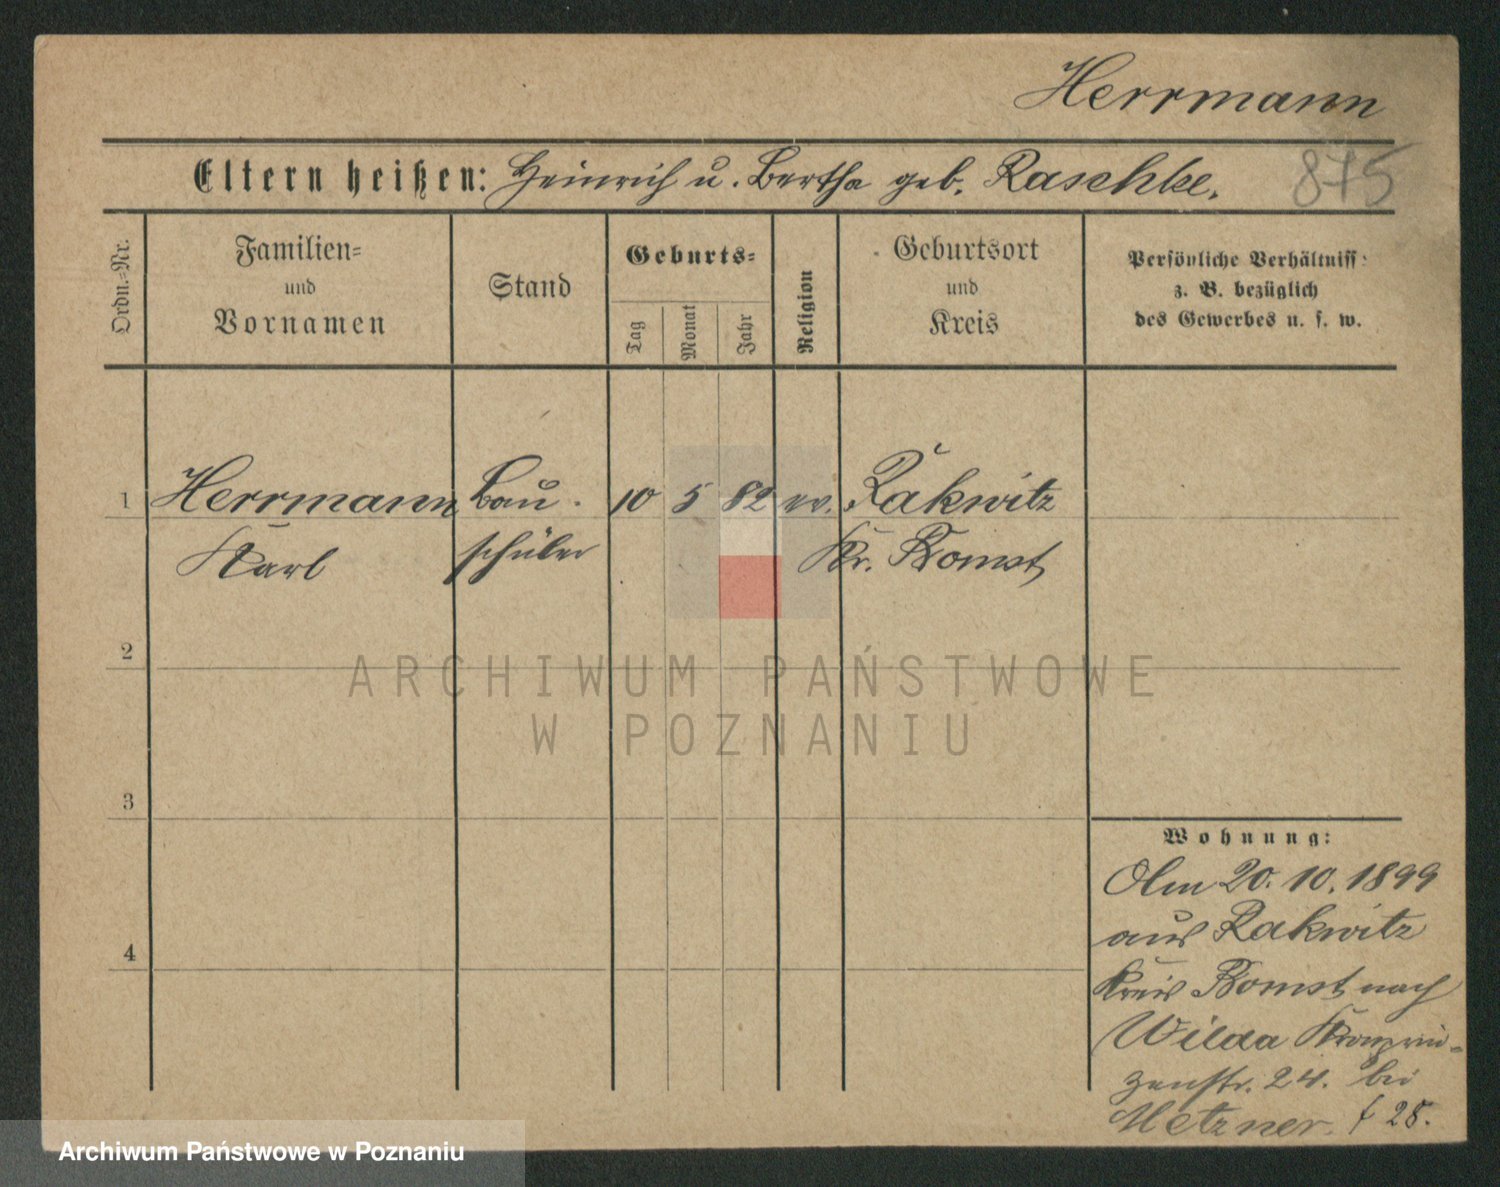 Herrmann
Eltern heißen: Heinrich u. Bertha geb. Raschke.
875
Ordn.-Nr.
Familien-
und
Vornamen
Stand
Geburts-
Tag
Monat
Jahr
Religion
Geburtsort
und
Kreis
Persönliche Verhältniss
z. B. bezüglich
des Gewerbes u. s. w.
1 Herrmann Bau- 10 5 82 ev. Rakwitz
Karl schüler Kr. Bomst
2
ARCHIWUM PAŃSTWOWE
W POZNANIU
3
Wohnung:
Am 20. 10. 1899
aus Rakwitz
4
Kreis Bomst nach
Wilda Kronprin-
zenstr. 24. bei
Metzner. 28.
Archiwum Państwowe w Poznaniu